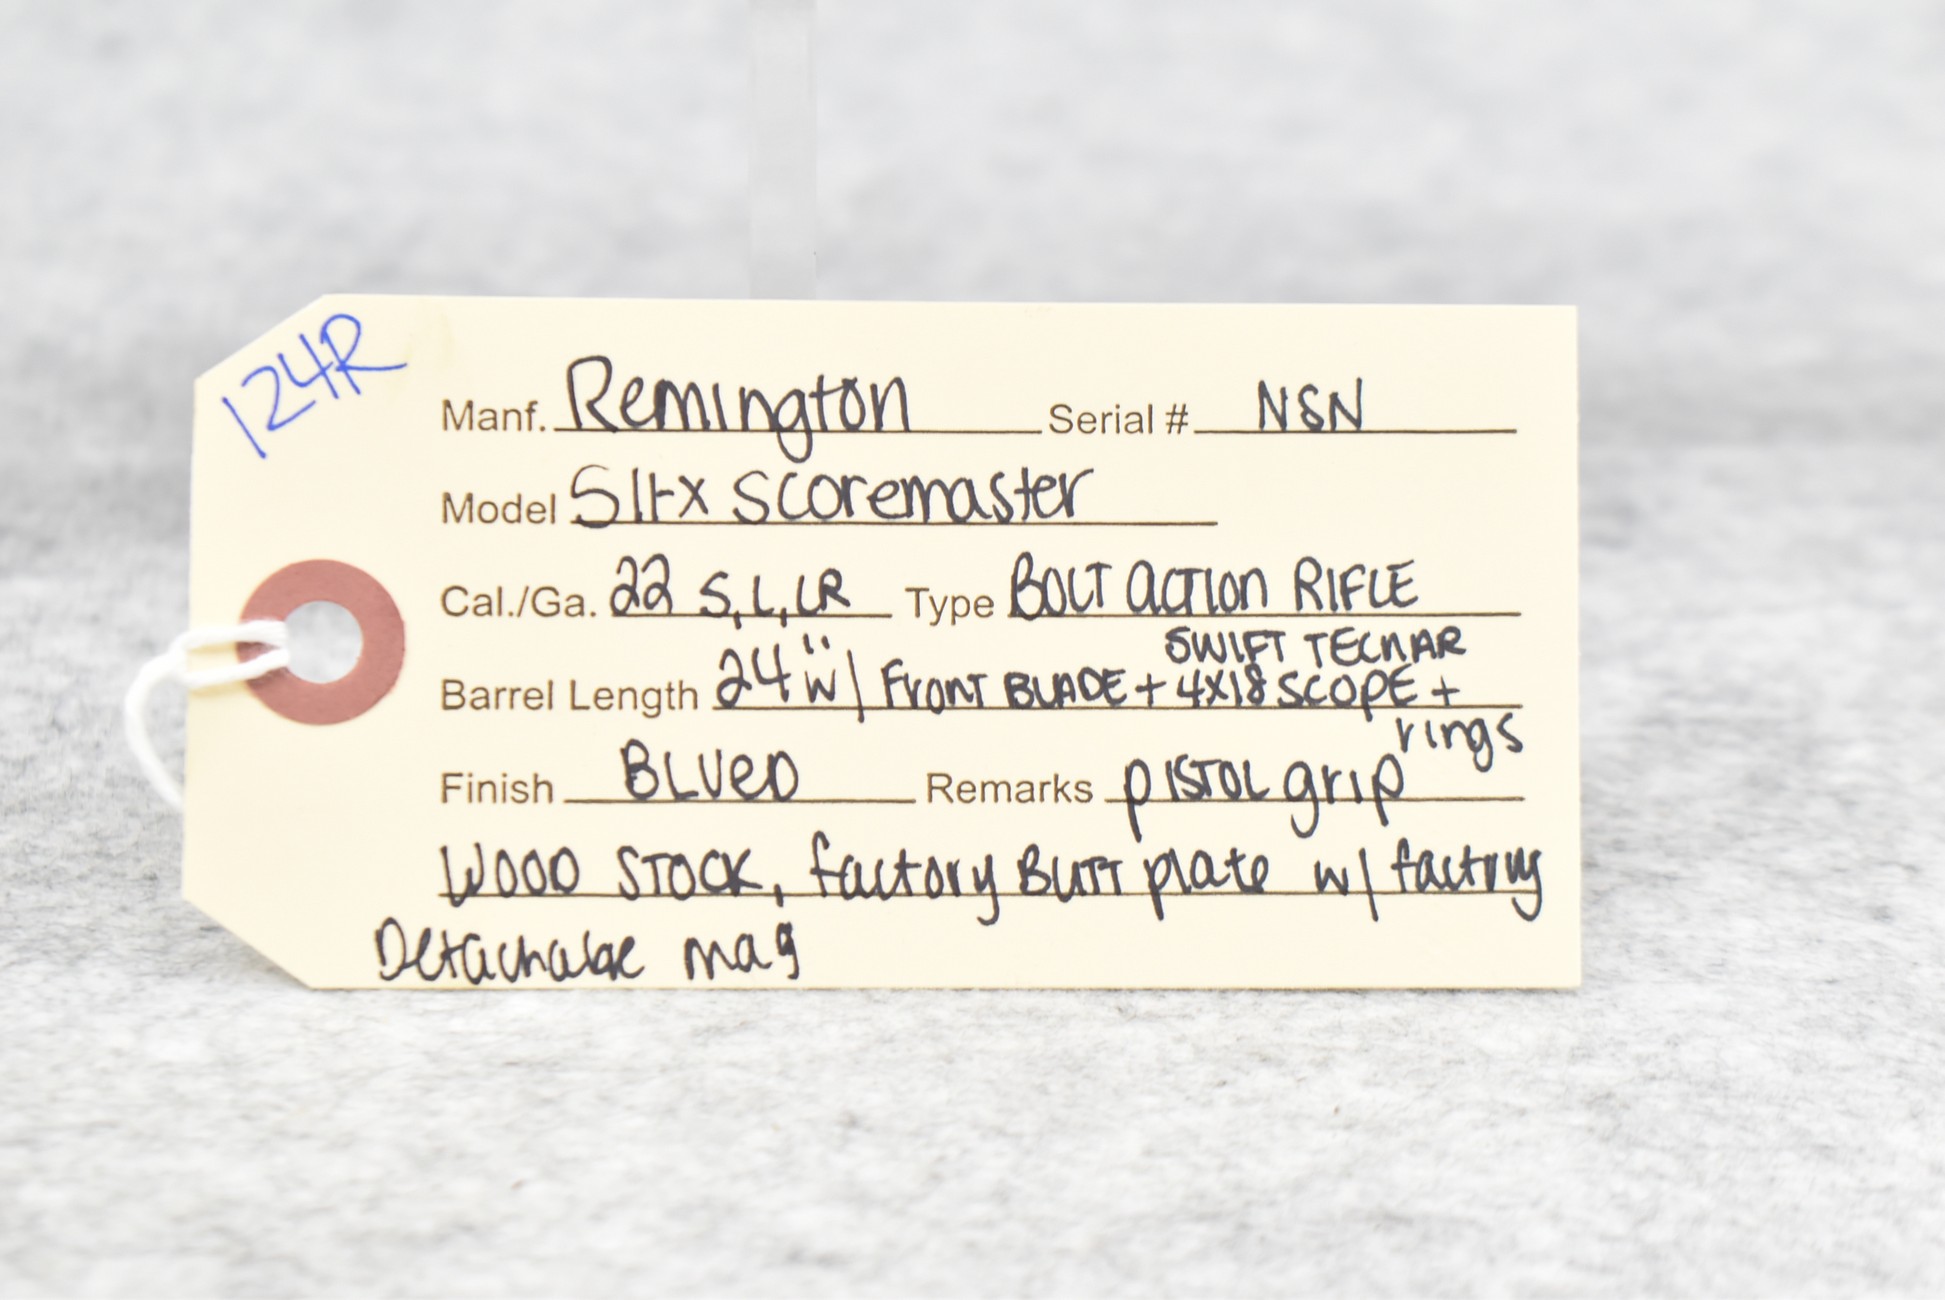 124R
Manf. Remington Serial # NSN
Model 511-X Scoremaster
Cal./Ga. 22 S, L, LR Type BOLT ACTION RIFLE
SWIFT TECNAR
Barrel Length 24" w/ FRONT BLADE + 4X18 SCOPE +
rings
Finish BLUED Remarks pISTOL grip
WOOD STOCK, factory BUTT plate w/ factory
Detachable mag